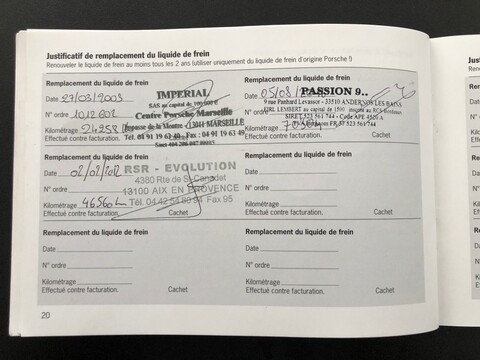 Justificatif de remplacement du liquide de frein
Renouveler le liquide de frein au moins tous les 2 ans (utiliser uniquement du liquide de frein d'origine Porsche !)
Remplacement du liquide de frein
Date 27/03/2003
N° ordre 1012602
Kilométrage 24253
Effectué contre facturation.
IMPERIAL
SAS au capital de
Centre Porsche Marseille
Impasse de la Montre - 13011 MARSEILLE
Tél. 04 91 19 63 40 - Fax : 04 91 19 63 49
Remplacement du liquide de frein
Date 05/08/
N° ordre
Kilométrage
Effectué contre facturation.
PASSION 9..
9 rue Panhard Levassor - 33510 ANDERNOS LES BAINS
EIRL LEMBERT au capital de 1500
SIRET 523 561 744 - Code APE 4520 A
FR 523 561 744
Remplacement du liquide de frein
Date 02/02/2012
N° ordre
Kilométrage 46560 km
Effectué contre facturation.
Cachet
RSR - EVOLUTION
4380 Rte de St-Canadet
13100 AIX EN PROVENCE
Tél. 04 42 54 80 94 Fax 95
Remplacement du liquide de frein
Date
N° ordre
Kilométrage
Effectué contre facturation.
Cachet
Remplacement du liquide de frein
Date
N° ordre
Kilométrage
Effectué contre facturation.
Cachet
Remplacement du liquide de frein
Date
N° ordre
Kilométrage
Effectué contre facturation.
Cachet
20